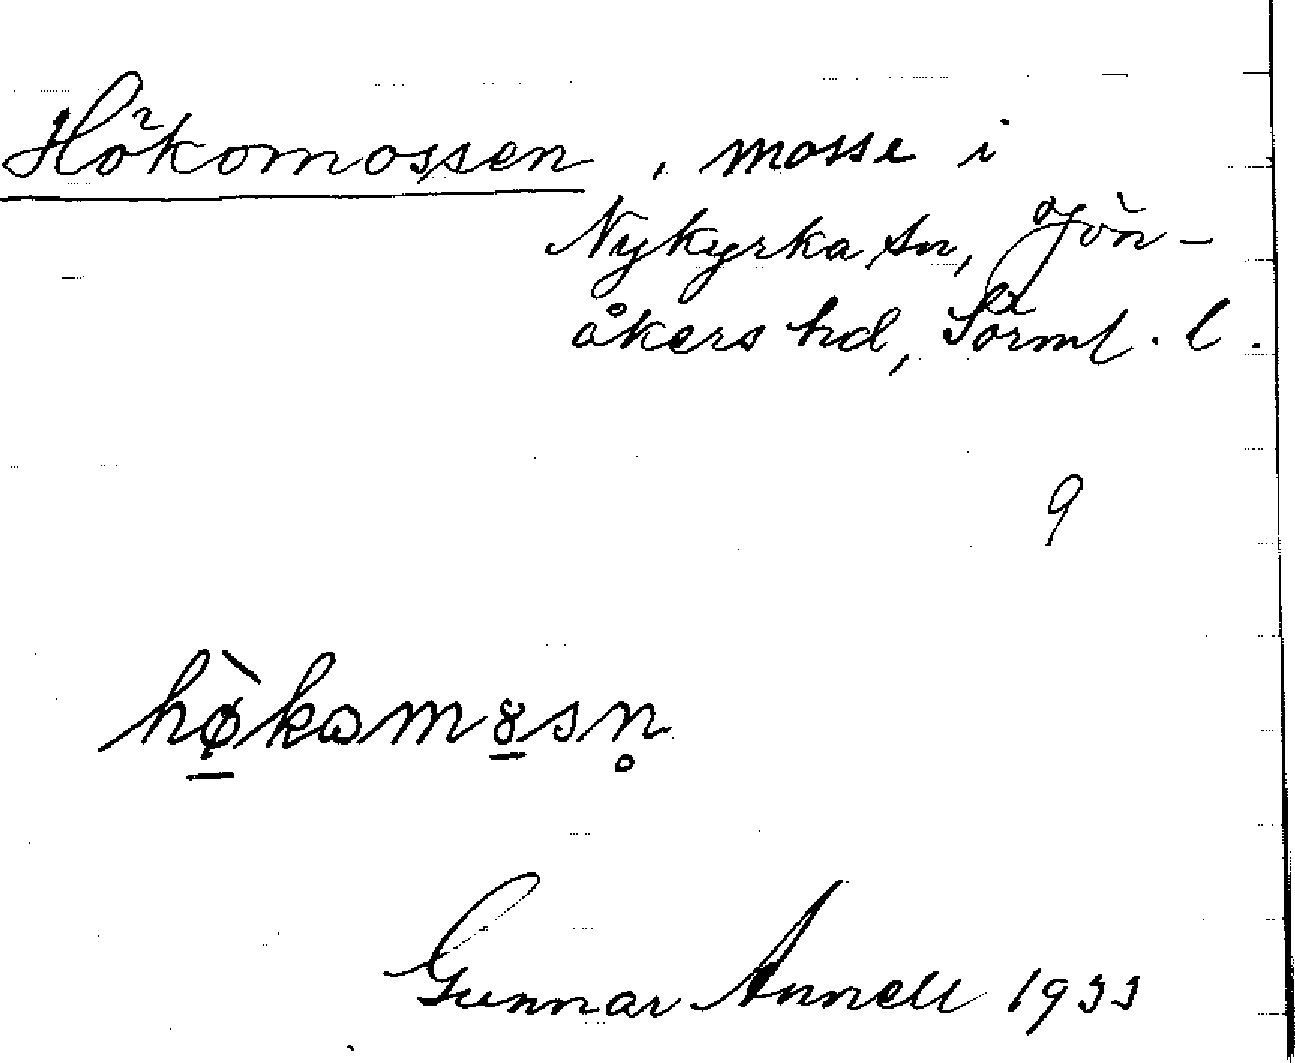 Hökomossen, mosse i
Nykyrka sn, Jön-
åkers hd, Sörml. l.
9
hø̀kɷmɵsn̥
Gunnar Annell 1933